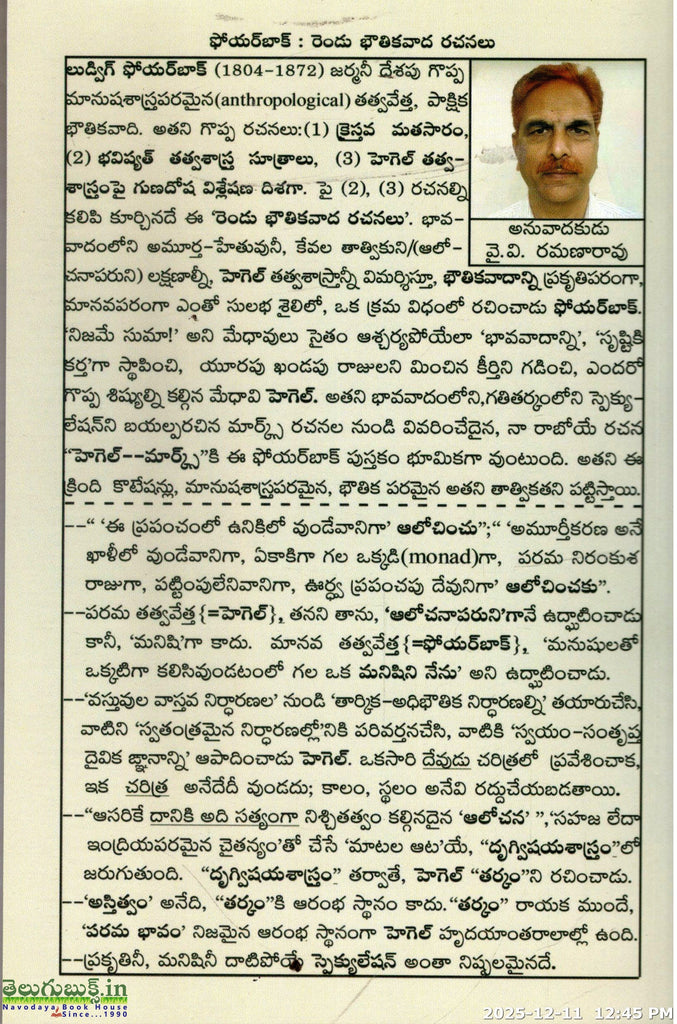 ఫోయర్‌బాక్ : రెండు భౌతికవాద రచనలు
లుడ్విగ్ ఫోయర్‌బాక్ (1804-1872) జర్మనీ దేశపు గొప్ప
మానుషశాస్త్రపరమైన(anthropological) తత్వవేత్త, పాక్షిక
భౌతికవాది. అతని గొప్ప రచనలు:(1) క్రైస్తవ మతసారం,
(2) భవిష్యత్ తత్వశాస్త్ర సూత్రాలు, (3) హెగెల్ తత్వ-
శాస్త్రంపై గుణదోష విశ్లేషణ దిశగా. పై (2), (3) రచనల్ని
కలిపి కూర్చినదే ఈ 'రెండు భౌతికవాద రచనలు'. భావ-
వాదంలోని అమూర్త-హేతువునీ, కేవల తాత్వికుని/(ఆలో-
చనాపరుని) లక్షణాల్నీ, హెగెల్ తత్వశాస్త్రాన్నీ విమర్శిస్తూ, భౌతికవాదాన్ని ప్రకృతిపరంగా,
మానవపరంగా ఎంతో సులభ శైలిలో, ఒక క్రమ విధంలో రచించాడు ఫోయర్‌బాక్.
'నిజమే సుమా!' అని మేధావులు సైతం ఆశ్చర్యపోయేలా 'భావవాదాన్ని', 'సృష్టికి
కర్త'గా స్థాపించి, యూరపు ఖండపు రాజులని మించిన కీర్తిని గడించి, ఎందరో
గొప్ప శిష్యుల్ని కల్గిన మేధావి హెగెల్. అతని భావవాదంలోని,గతితర్కంలోని స్పెక్యు-
లేషన్‌ని బయల్పరచిన మార్క్స్ రచనల నుండి వివరించేదైన, నా రాబోయే రచన
"హెగెల్--మార్క్స్"కి ఈ ఫోయర్‌బాక్ పుస్తకం భూమికగా వుంటుంది. అతని ఈ
క్రింది కొటేషన్లు, మానుషశాస్త్రపరమైన, భౌతిక పరమైన అతని తాత్వికతని పట్టిస్తాయి.
అనువాదకుడు
వై.వి. రమణారావు
--" 'ఈ ప్రపంచంలో ఉనికిలో వుండేవానిగా' ఆలోచించు";" 'అమూర్తీకరణ అనే
ఖాళీలో వుండేవానిగా, ఏకాకిగా గల ఒక్కడి(monad)గా, పరమ నిరంకుశ
రాజుగా, పట్టింపులేనివానిగా, ఊర్ధ్వ ప్రపంచపు దేవునిగా' ఆలోచించకు".
--పరమ తత్వవేత్త{=హెగెల్}, తనని తాను, 'ఆలోచనాపరుని'గానే ఉద్ఘాటించాడు
కానీ, 'మనిషి'గా కాదు. మానవ తత్వవేత్త{=ఫోయర్‌బాక్}, 'మనుషులతో
ఒక్కటిగా కలిసివుండటంలో గల ఒక మనిషిని నేను' అని ఉద్ఘాటించాడు.
--'వస్తువుల వాస్తవ నిర్ధారణల' నుండి 'తార్కిక-అధిభౌతిక నిర్ధారణల్ని' తయారుచేసి,
వాటిని 'స్వతంత్రమైన నిర్ధారణల్లో'నికి పరివర్తనచేసి, వాటికి 'స్వయం-సంతృప్త
దైవిక జ్ఞానాన్ని' ఆపాదించాడు హెగెల్. ఒకసారి దేవుడు చరిత్రలో ప్రవేశించాక,
ఇక చరిత్ర అనేదేదీ వుండదు; కాలం, స్థలం అనేవి రద్దుచేయబడతాయి.
--"ఆసరికే దానికి అది సత్యంగా నిశ్చితత్వం కల్గినదైన 'ఆలోచన' ",'సహజ లేదా
ఇంద్రియపరమైన చైతన్యం'తో చేసే 'మాటల ఆట'యే, "దృగ్విషయశాస్త్రం"లో
జరుగుతుంది. "దృగ్విషయశాస్త్రం" తర్వాతే, హెగెల్ "తర్కం"ని రచించాడు.
--'అస్తిత్వం' అనేది, "తర్కం"కి ఆరంభ స్థానం కాదు."తర్కం" రాయక ముందే,
'పరమ భావం' నిజమైన ఆరంభ స్థానంగా హెగెల్ హృదయాంతరాలాల్లో ఉంది.
--ప్రకృతినీ, మనిషినీ దాటిపోయే స్పెక్యులేషన్ అంతా నిష్ఫలమైనదే.
తెలుగుబుక్స్.in
Navodaya Book House
Since...1990
2025-12-11 12:45 PM